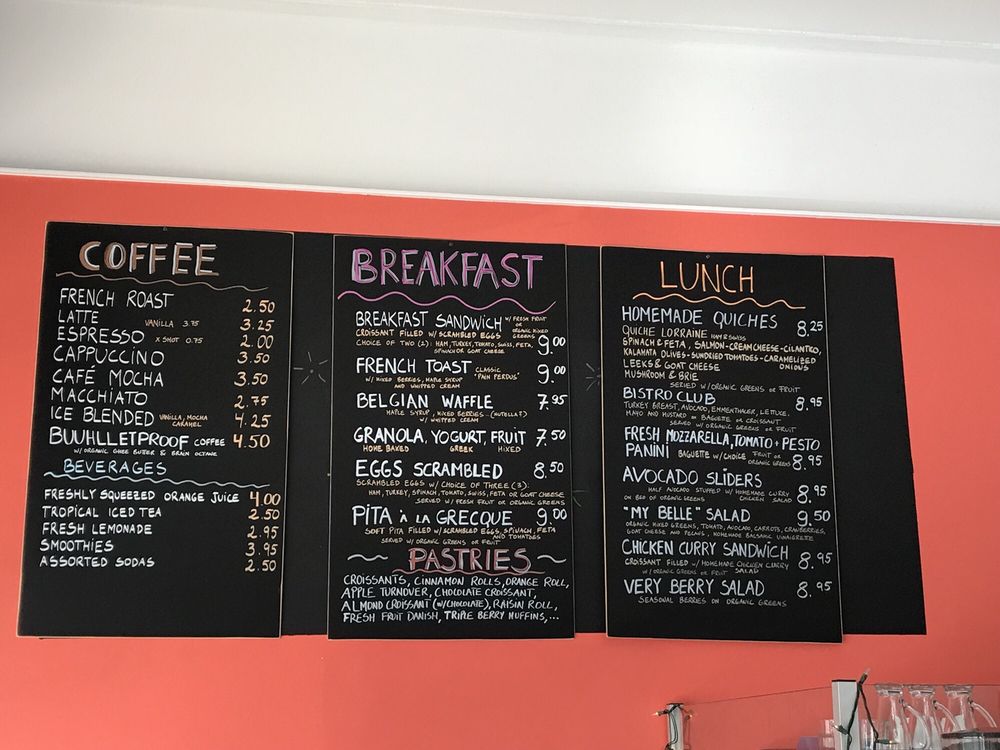 COFFEE
FRENCH ROAST 2.50
LATTE VANILLA 3.75 3.25
ESPRESSO X SHOT 0.75 2.00
CAPPUCCINO 3.50
CAFÉ MOCHA 3.50
MACCHIATO 2.75
ICE BLENDED VANILLA, MOCHA CARAMEL 4.25
BUUHLLETPROOF COFFEE 4.50
W/ ORGANIC GHEE BUTTER & BRAIN OCTANE
BEVERAGES
FRESHLY SQUEEZED ORANGE JUICE 4.00
TROPICAL ICED TEA 2.50
FRESH LEMONADE 2.95
SMOOTHIES 3.95
ASSORTED SODAS 2.50
BREAKFAST
BREAKFAST SANDWICH W/ FRESH FRUIT OR ORGANIC MIXED GREENS 9.00
CROISSANT FILLED W/ SCRAMBLED EGGS
CHOICE OF TWO (2): HAM, TURKEY, TOMATO, SWISS, FETA,
SPINACH OR GOAT CHEESE
FRENCH TOAST CLASSIC "PAIN PERDUS" 9.00
W/ MIXED BERRIES, MAPLE SYRUP
AND WHIPPED CREAM
BELGIAN WAFFLE 7.95
MAPLE SYRUP, MIXED BERRIES... (NUTELLA?)
W/ WHIPPED CREAM
GRANOLA, YOGURT, FRUIT 7.50
HOME BAKED GREEK MIXED
EGGS SCRAMBLED 8.50
SCRAMBLED EGGS W/ CHOICE OF THREE (3):
HAM, TURKEY, SPINACH, TOMATO, SWISS, FETA OR GOAT CHEESE
SERVED W/ FRESH FRUIT OR ORGANIC GREENS
PITA à LA GRECQUE 9.00
SOFT PITA FILLED W/ SCRAMBLED EGGS, SPINACH, FETA
AND TOMATOES
SERVED W/ ORGANIC GREENS OR FRUIT
PASTRIES
CROISSANTS, CINNAMON ROLLS, ORANGE ROLL,
APPLE TURNOVER, CHOCOLATE CROISSANT,
ALMOND CROISSANT (W/CHOCOLATE), RAISIN ROLL,
FRESH FRUIT DANISH, TRIPLE BERRY MUFFINS,...
LUNCH
HOMEMADE QUICHES 8.25
QUICHE LORRAINE HAM & SWISS
SPINACH & FETA, SALMON-CREAMCHEESE-CILANTRO,
KALAMATA OLIVES-SUNDRIED TOMATOES-CARAMELIZED ONIONS
LEEKS & GOAT CHEESE
MUSHROOM & BRIE
SERVED W/ ORGANIC GREENS OR FRUIT
BISTRO CLUB 8.95
TURKEY BREAST, AVOCADO, EMMENTHALER, LETTUCE.
MAYO AND MUSTARD ON BAGUETTE OR CROISSANT
SERVED W/ ORGANIC GREENS OR FRUIT
FRESH MOZZARELLA, TOMATO + PESTO
PANINI BAGUETTE W/CHOICE FRUIT OR ORGANIC GREENS 8.95
AVOCADO SLIDERS 8.95
HALF AVOCADO STUFFED W/ HOMEMADE CURRY CHICKEN SALAD
ON BED OF ORGANIC GREENS
"MY BELLE" SALAD 9.50
ORGANIC MIXED GREENS, TOMATO, AVOCADO, CARROTS, CRANBERRIES,
GOAT CHEESE AND PECANS, HOMEMADE BALSAMIC VINAIGRETTE
CHICKEN CURRY SANDWICH 8.95
CROISSANT FILLED W/ HOMEMADE CHICKEN CURRY SALAD
W/ ORGANIC GREENS OR FRUIT
VERY BERRY SALAD 8.95
SEASONAL BERRIES ON ORGANIC GREENS